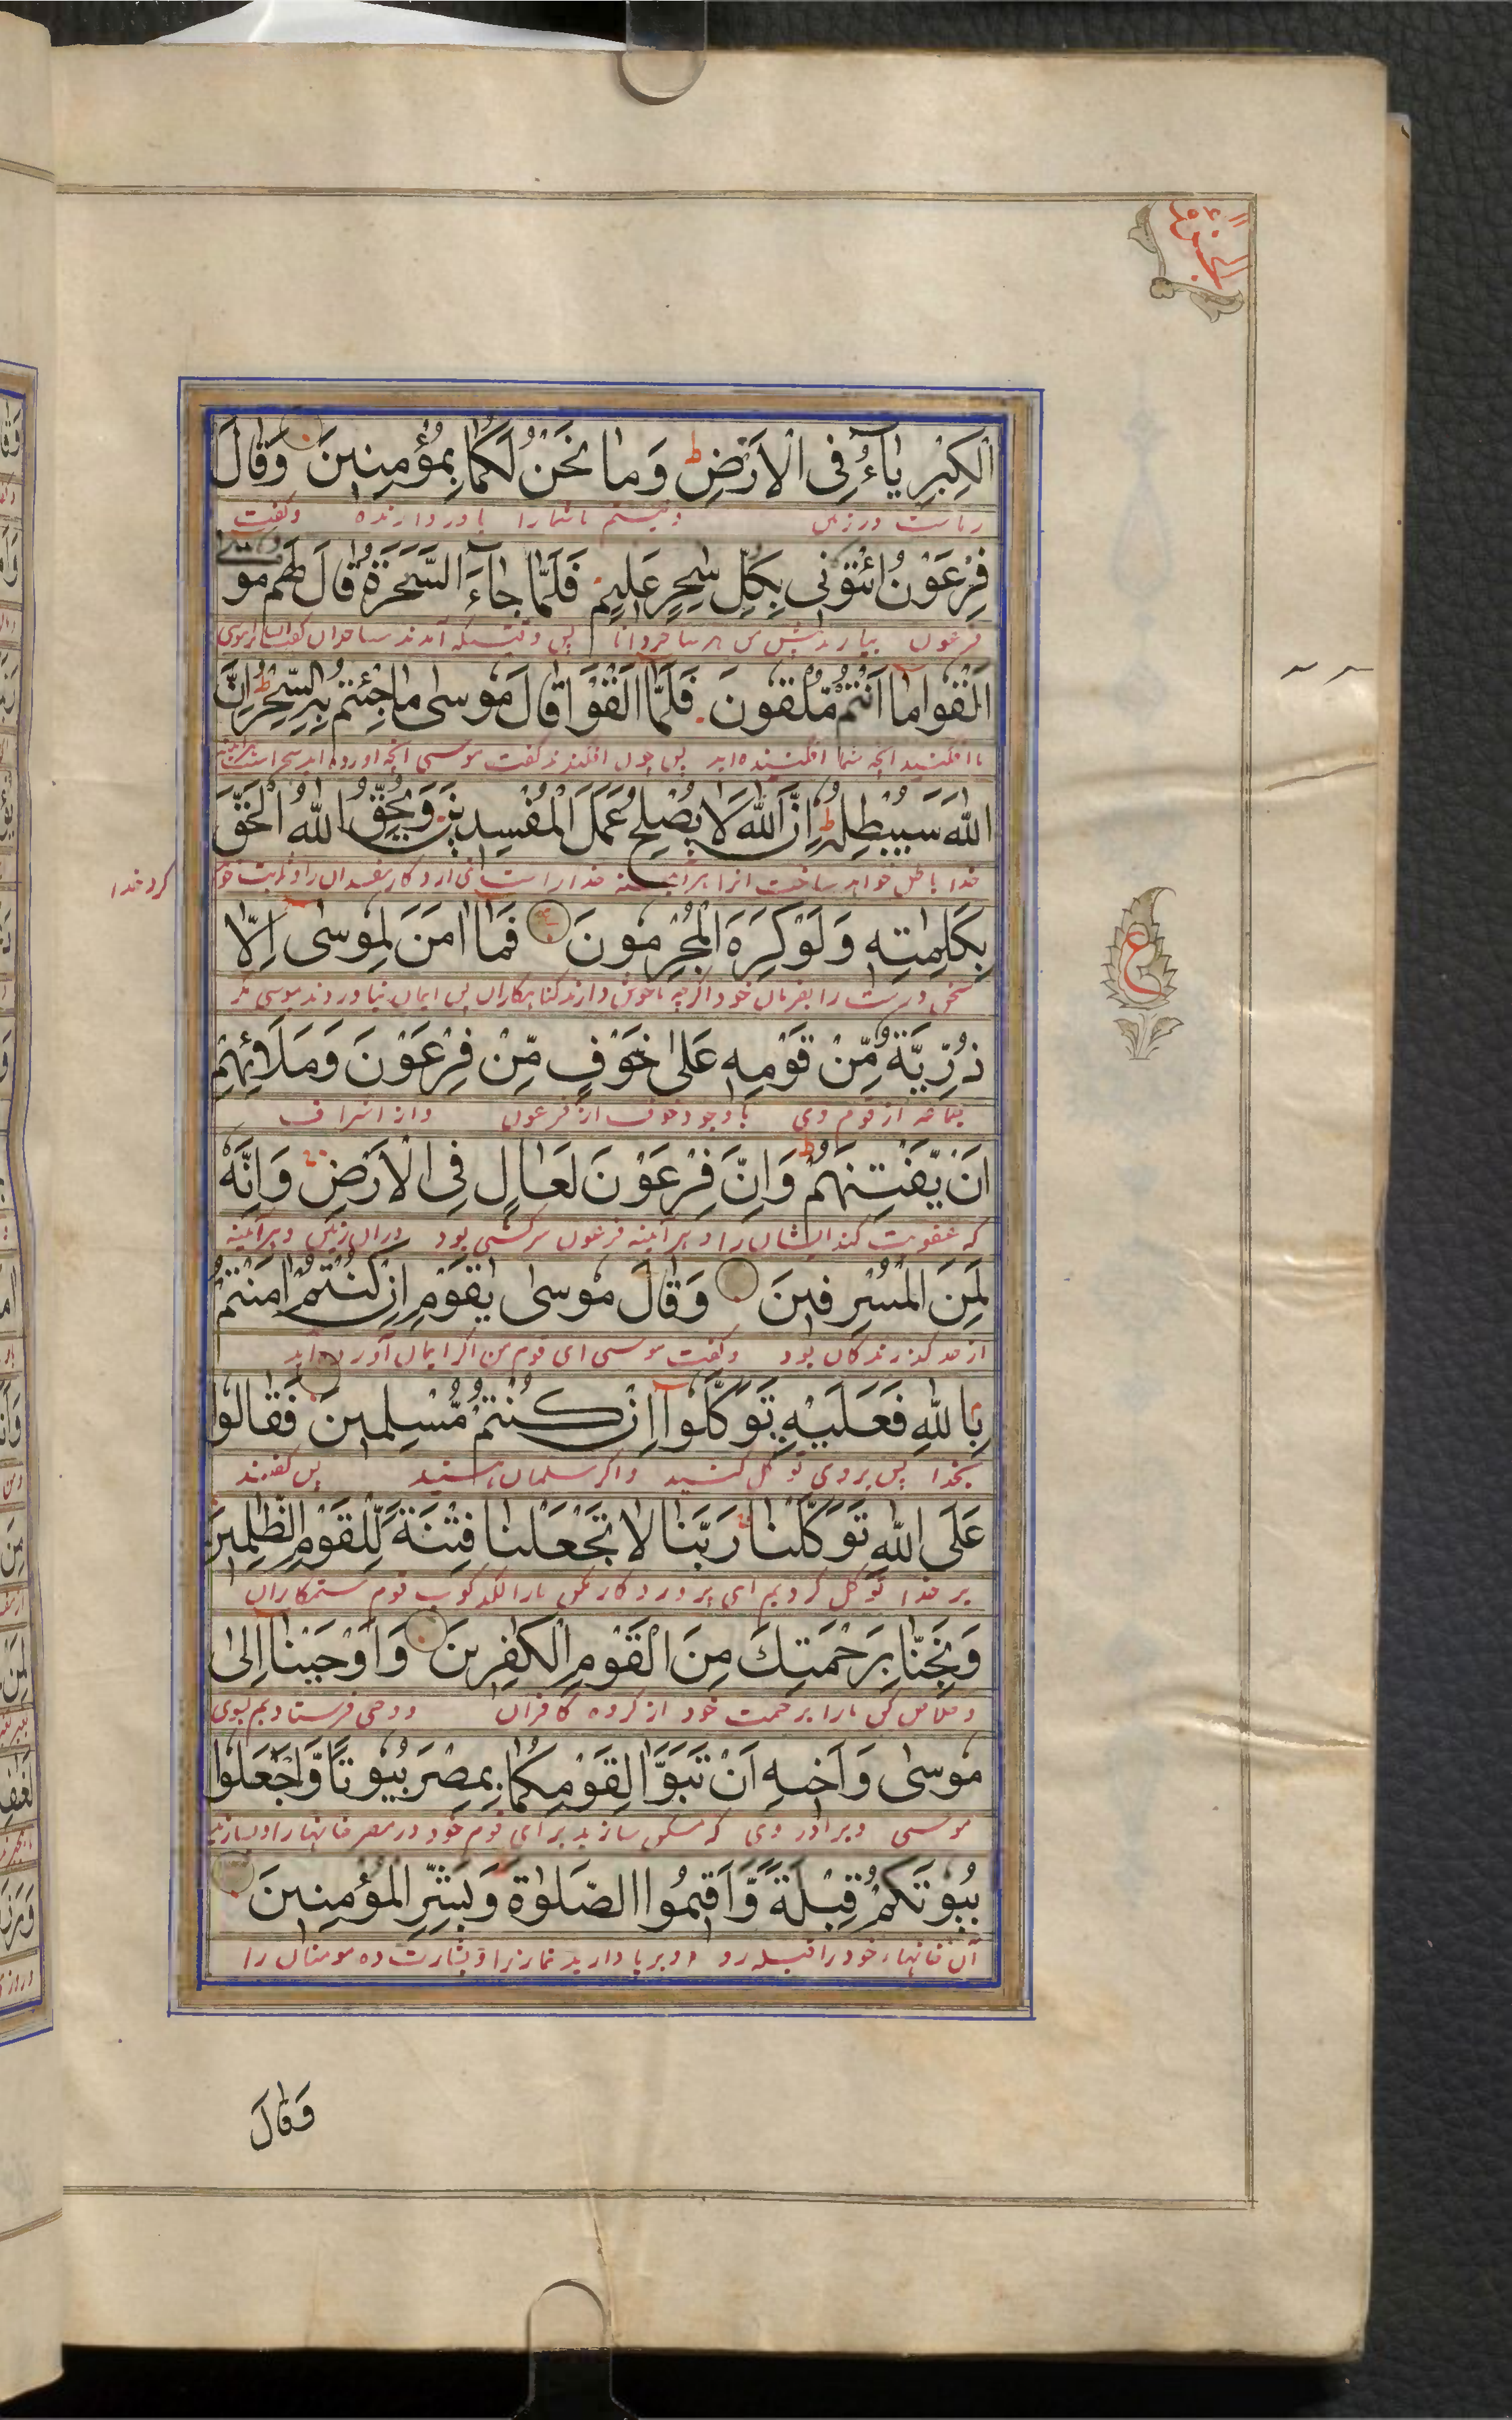 الجزء
الْكِبْرِيَاءُ فِى الْاَرْضِ ط وَمَا نَحْنُ لَكُمَا بِمُؤْمِنِينَ وَقَالَ
ریاست در زمین و نیستم ما شما را باور دارنده و گفت
فِرْعَوْنُ ائْتُونِى بِكُلِّ سٰحِرٍ عَلِيمٍ فَلَمَّا جَآءَ السَّحَرَةُ قَالَ لَهُم مو
سى
فرعون بیارید پیش من هر ساحر دانا پس وقتیکه آمدند ساحران گفت ایشانرا موسی
اَلْقُوا مَا اَنْتُمْ مُلْقُونَ فَلَمَّا اَلْقَوْا قَالَ مُوسٰى مَا جِئْتُمْ بِهِ السِّحْرُ ط اِنَّ
افکنید انچه شما افکننده اید پس چون افکندند گفت موسی انچه اورده اید سحر است
اللّٰهَ سَيُبْطِلُهُ ط اِنَّ اللّٰهَ لَا يُصْلِحُ عَمَلَ الْمُفْسِدِينَ وَيُحِقُّ اللّٰهُ الْحَقَّ
خدا باطل خواهد ساخت انرا هر آینه خدا راست نمی ارد کار مفسدان را و ثابت خو
کرد خدا
بِكَلِمٰتِهِ وَلَوْ كَرِهَ الْمُجْرِمُونَ فَمَا اٰمَنَ لِمُوسٰى اِلَّا
سخن درست را بفرمان خود اگرچه ناخوش دارند گناهکاران پس ایمان نیاوردند بموسی مگر
ع
ذُرِّيَّةٌ مِّنْ قَوْمِهِ عَلٰى خَوْفٍ مِّنْ فِرْعَوْنَ وَمَلَائِهِمْ
جماعه از قوم وی باوجود خوف از فرعون و از اشراف
اَنْ يَّفْتِنَهُمْ ط وَاِنَّ فِرْعَوْنَ لَعَالٍ فِى الْاَرْضِ وَاِنَّهُ
که عقوبت کند ایشان را و هر آینه فرعون سرکشی بود دران زمین و هر آینه
لَمِنَ الْمُسْرِفِينَ وَقَالَ مُوسٰى يٰقَوْمِ اِنْ كُنْتُمْ اٰمَنْتُمْ
از حد گذرندگان بود و گفت موسی ای قوم من اگر ایمان آورده اید
بِاللّٰهِ فَعَلَيْهِ تَوَكَّلُوا اِنْ كُنْتُمْ مُّسْلِمِينَ فَقَالُوا
بخدا پس بروی توکل کنید و اگر مسلمان هستید پس گفتند
عَلَى اللّٰهِ تَوَكَّلْنَا رَبَّنَا لَا تَجْعَلْنَا فِتْنَةً لِّلْقَوْمِ الظّٰلِمِينَ
بر خدا توکل کردیم ای پروردگار مکن مارا لگدکوب قوم ستمکاران
وَنَجِّنَا بِرَحْمَتِكَ مِنَ الْقَوْمِ الْكٰفِرِينَ وَاَوْحَيْنَا اِلٰى
و خلاص کن مارا برحمت خود از گروه کافران و وحی فرستادیم بسوی
مُوسٰى وَاَخِيهِ اَنْ تَبَوَّاٰ لِقَوْمِكُمَا بِمِصْرَ بُيُوتًا وَّاجْعَلُوا
موسی و برادر وی که مسکن سازید برای قوم خود در مصر خانها را و بسازید
بُيُوتَكُمْ قِبْلَةً وَّاَقِيمُوا الصَّلٰوةَ وَبَشِّرِ الْمُؤْمِنِينَ
آن خانهاء خود را قبله رو و برپا دارید نماز را و بشارت ده مومنان را
وَقَالَ